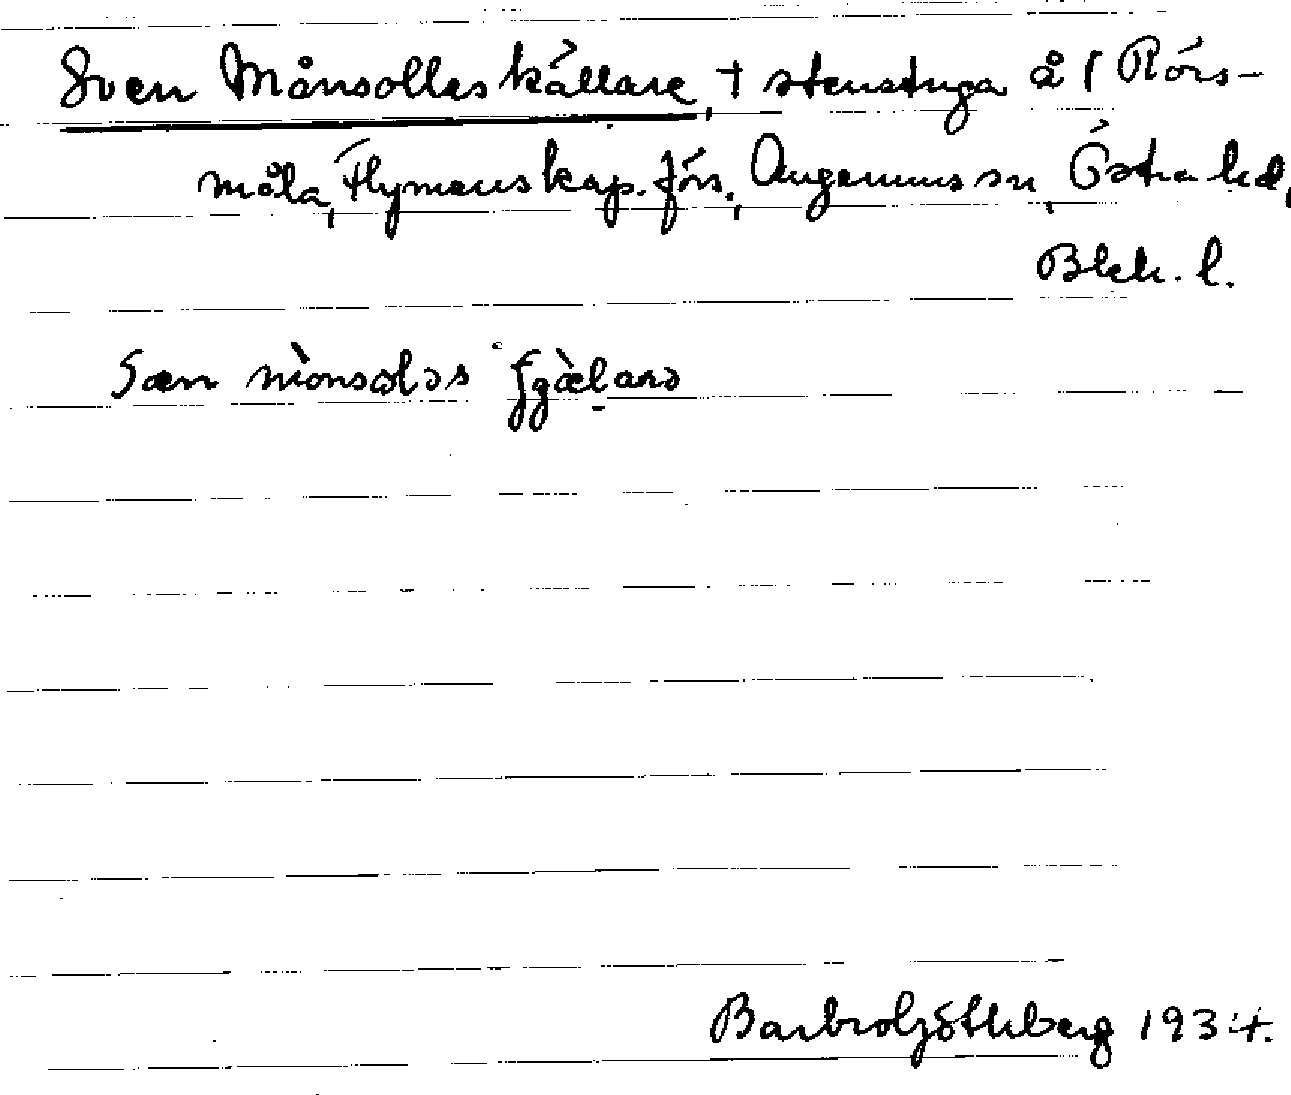 Sven Månsolles källare, + stenstuga å f Rörs-
måla, Flymens kap. förs., Augerums sn, Östra hd,
Blek. l.
Barbro Göthberg 1934.